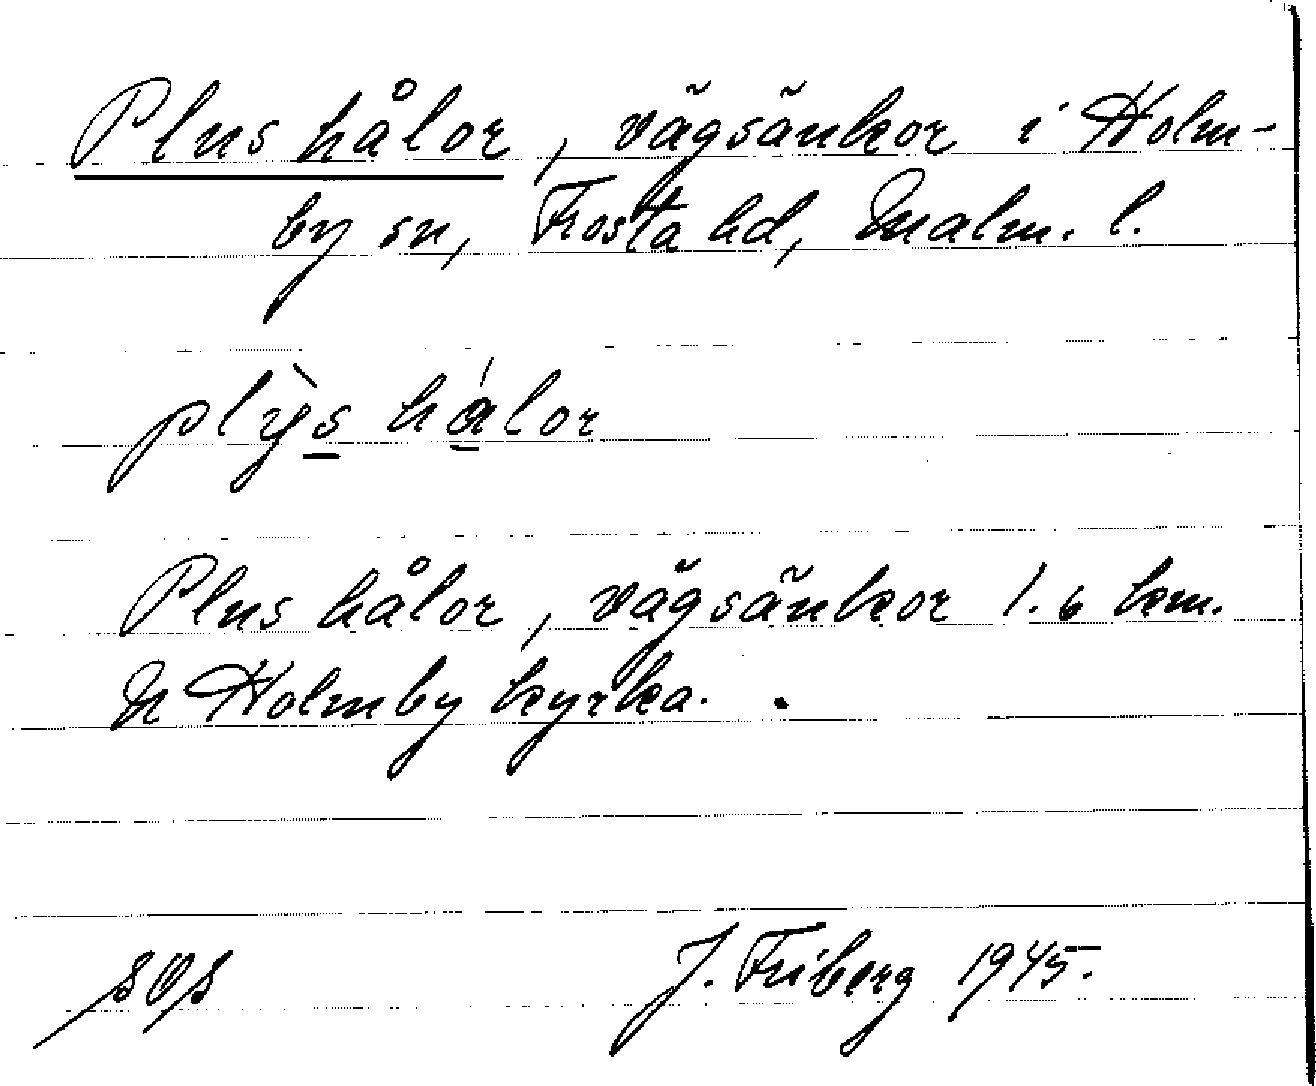 Plus hålor, vägsänkor i Holm-
by sn, Frosta hd, Malm. l.
plỳs hálor
Plus hålor, vägsänkor 1.6 km.
N Holmby kyrka.
J. Friberg 1945.